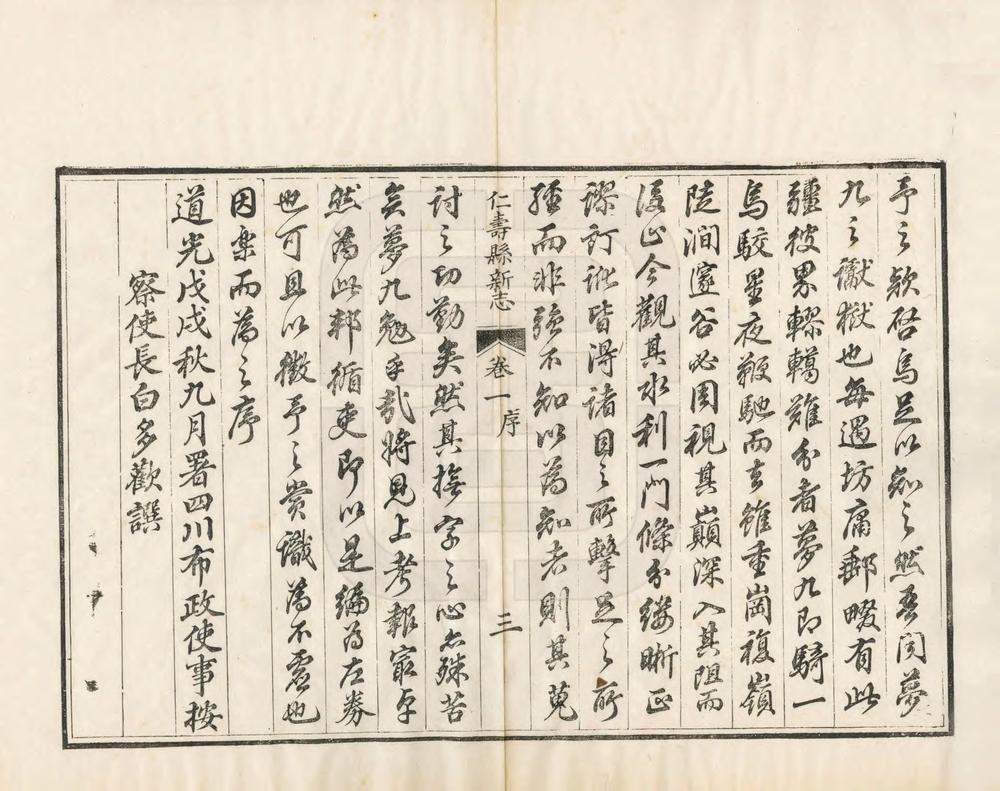 予之欵啓烏足以知之然吾聞夢
九之讞獄也每遇坊庸郵畷有此
疆彼界轇轕難分者夢九即騎一
烏駮星夜鞭馳而去雖重崗複嶺
陡澗邃谷必周視其巔深入其阻而
後止今觀其水利一門條分縷晰正
謬訂訛皆得諸目之所擊足之所
經而非強不知以為知者則其蒐
仁壽縣新志
卷一
序
三
討之功勤矣然其撫字之心亦殊苦
矣夢九勉乎哉將見上考報最卓
然為此邦循吏即以是編為左券
也可且以徵予之賞識為不虛也
因樂而為之序
道光戊戌秋九月署四川布政使事按
察使長白多歡譔